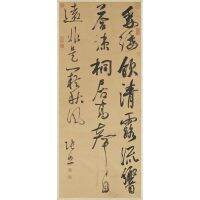 垂緌飲清露流響
桐居高聲自
遠非是藉秋風